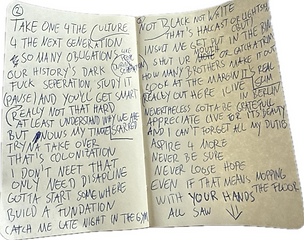 2
TAKE ONE 4 THE CULTURE
4 THE NEXT GENERATION
SO MANY OBLIGATIONS
OUR HISTORY'S DARK
FUCK SEPERATION STUDY IT
(PAUSE) AND YOU'LL GET SMART
REALLY NOT THAT HARD
AT LEAST UNDERSTAND WHY WE ARE SCARRED
BUT NOWS MY TIME
TRYNA TAKE OVER
THAT'S COLONIZATION
I DON'T NEET THAT
ONLY NEED DISIPLINE
GOTTA START SOMEWHERE
BUILD A FUNDATION
CATCH ME LATE NIGHT IN THE GYM
NOT BLACK NOT WHITE
THAT'S HALLAST OR
INSULT ME GET
SHUT UR MOUTH OR CATCH
HOW MANY BROTHERS MAKE IT OUT
LOOK AT THE MARGIN IT'S REAL SLIM
REALLY OUT HERE LIVE
NEVERTHELESS GOTTA BE GRATEFUL
APPRECIATE LIVE FOR ITS BEAUTY
AND I CAN'T FORGET ALL MY DUTIES
ASPIRE 4 MORE
NEVER BE SURE
NEVER LOOSE HOPE
EVEN IF THAT MEANS MOPPING THE FLOOR
WITH YOUR HANDS
ALL SAW